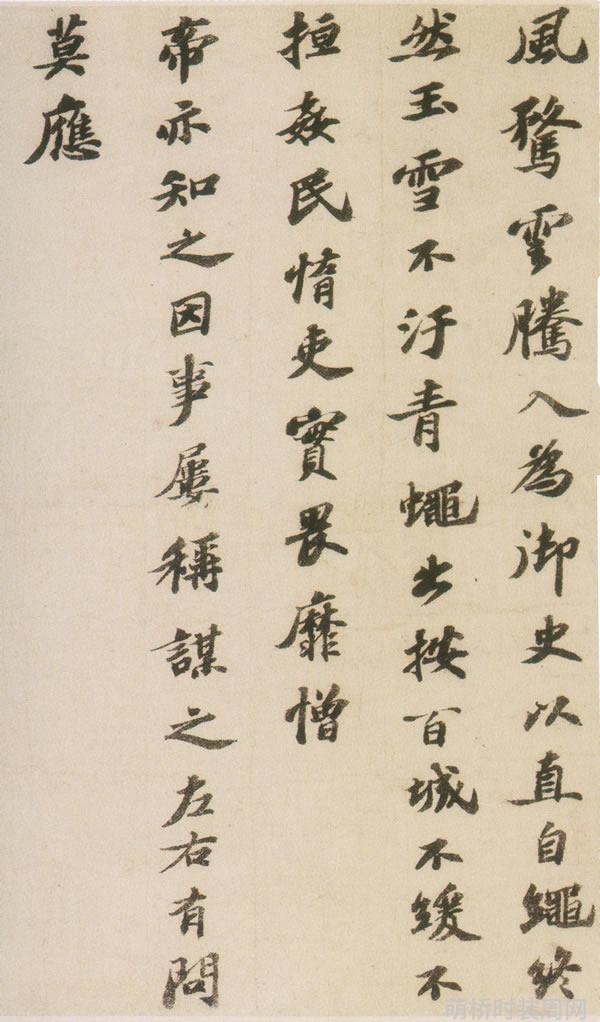 風騖雲騰入為御史以直自繩終
然玉雪不汙青蠅出按百城不緩不
搄姦民惰吏實畏靡憎
帝亦知之因事屢稱謀之左右有問
莫應
萌桥时装周网